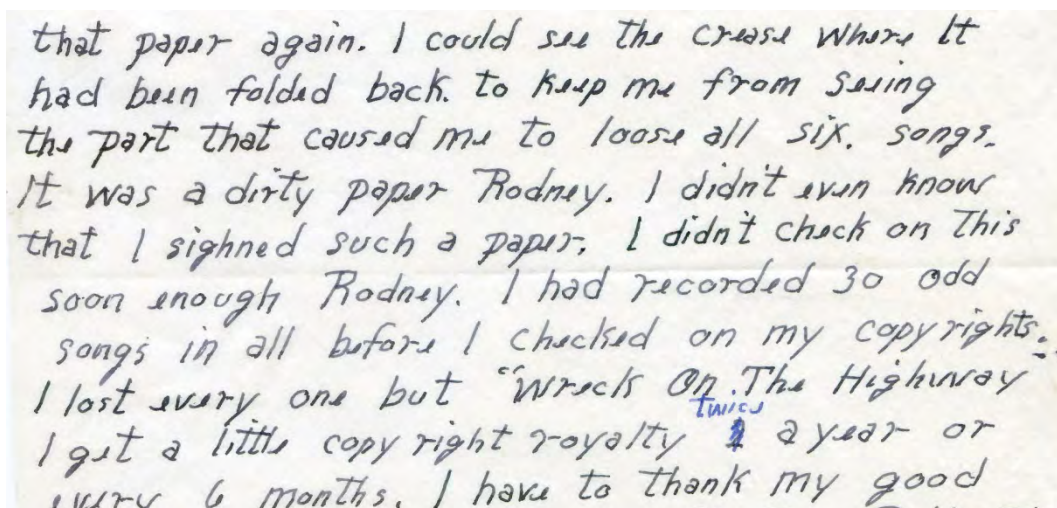 that paper again. I could see the crease where It
had been folded back. to keep me from seeing
the part that caused me to loose all six. songs.
It was a dirty paper Rodney. I didn't even know
that I sighned such a paper. I didn't check on this
soon enough Rodney. I had recorded 30 odd
songs in all before I checked on my copy rights.
I lost every one but "Wreck On The Highway
twice
I get a little copy right royalty a year or
every 6 months. I have to thank my good